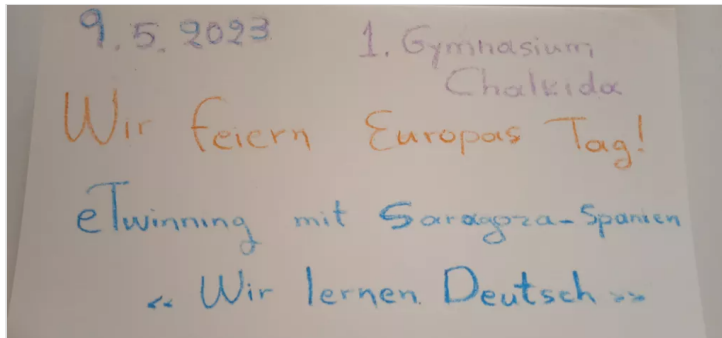 9.5.2023
1. Gymnasium
Chalkida
Wir feiern Europas Tag!
eTwinning mit Saragoza-Spanien
<< Wir lernen Deutsch >>